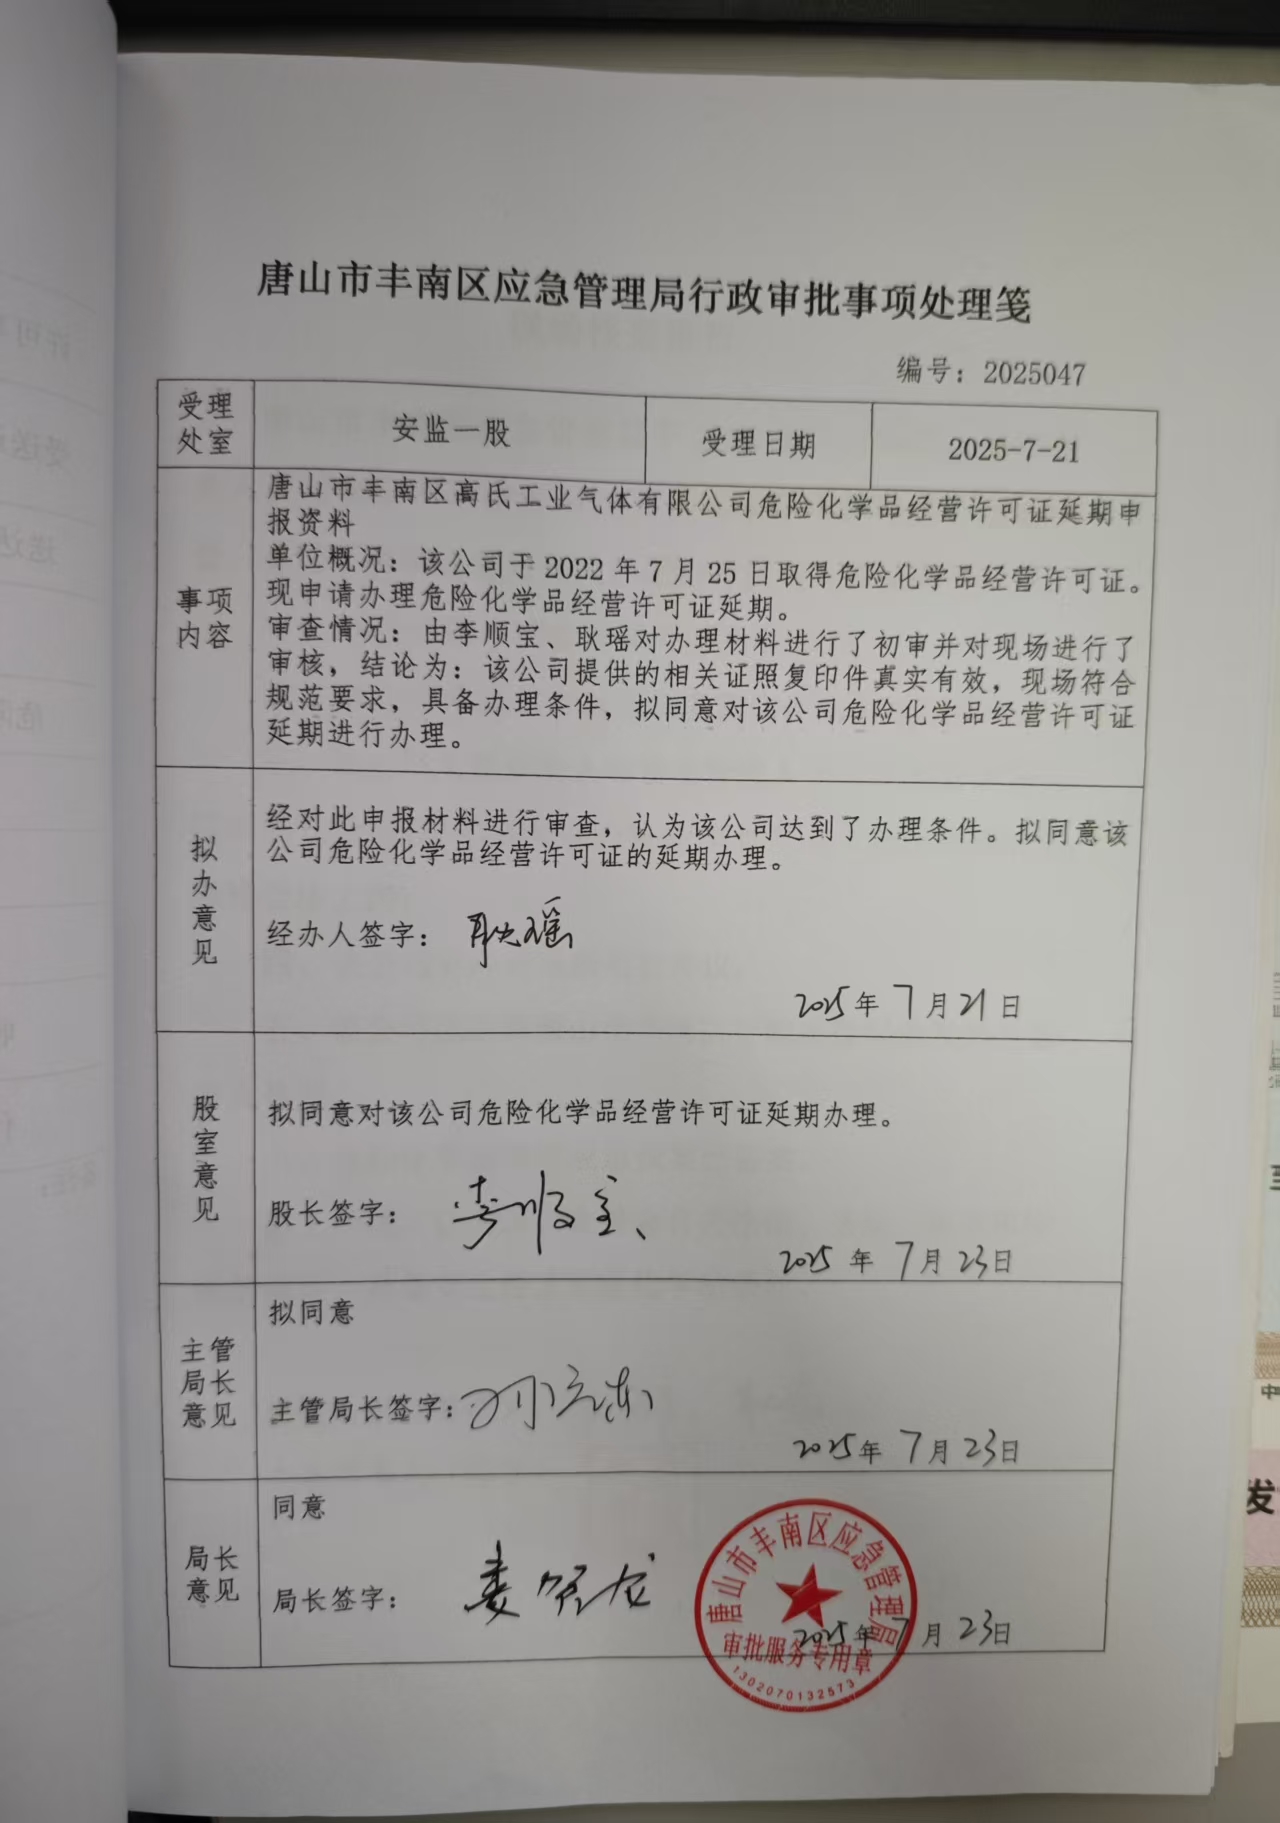 唐山市丰南区应急管理局行政审批事项处理笺
编号：2025047
受理
处室
安监一股
受理日期
2025-7-21
事项
内容
唐山市丰南区高氏工业气体有限公司危险化学品经营许可证延期申
报资料
单位概况：该公司于 2022 年 7 月 25 日取得危险化学品经营许可证。
现申请办理危险化学品经营许可证延期。
审查情况：由李顺宝、耿瑶对办理材料进行了初审并对现场进行了
审核，结论为：该公司提供的相关证照复印件真实有效，现场符合
规范要求，具备办理条件，拟同意对该公司危险化学品经营许可证
延期进行办理。
拟
办
意
见
经对此申报材料进行审查，认为该公司达到了办理条件。拟同意该
公司危险化学品经营许可证的延期办理。
经办人签字： 耿瑶
2025年 7月21日
股
室
意
见
拟同意对该公司危险化学品经营许可证延期办理。
股长签字： 李顺宝
2025 年 7月23日
主管
局长
意见
拟同意
主管局长签字：
2025年 7月23日
局长
意见
同意
局长签字：
2025年 7月23日
唐山市丰南区应急管理局
审批服务专用章
1302070132573
中
发